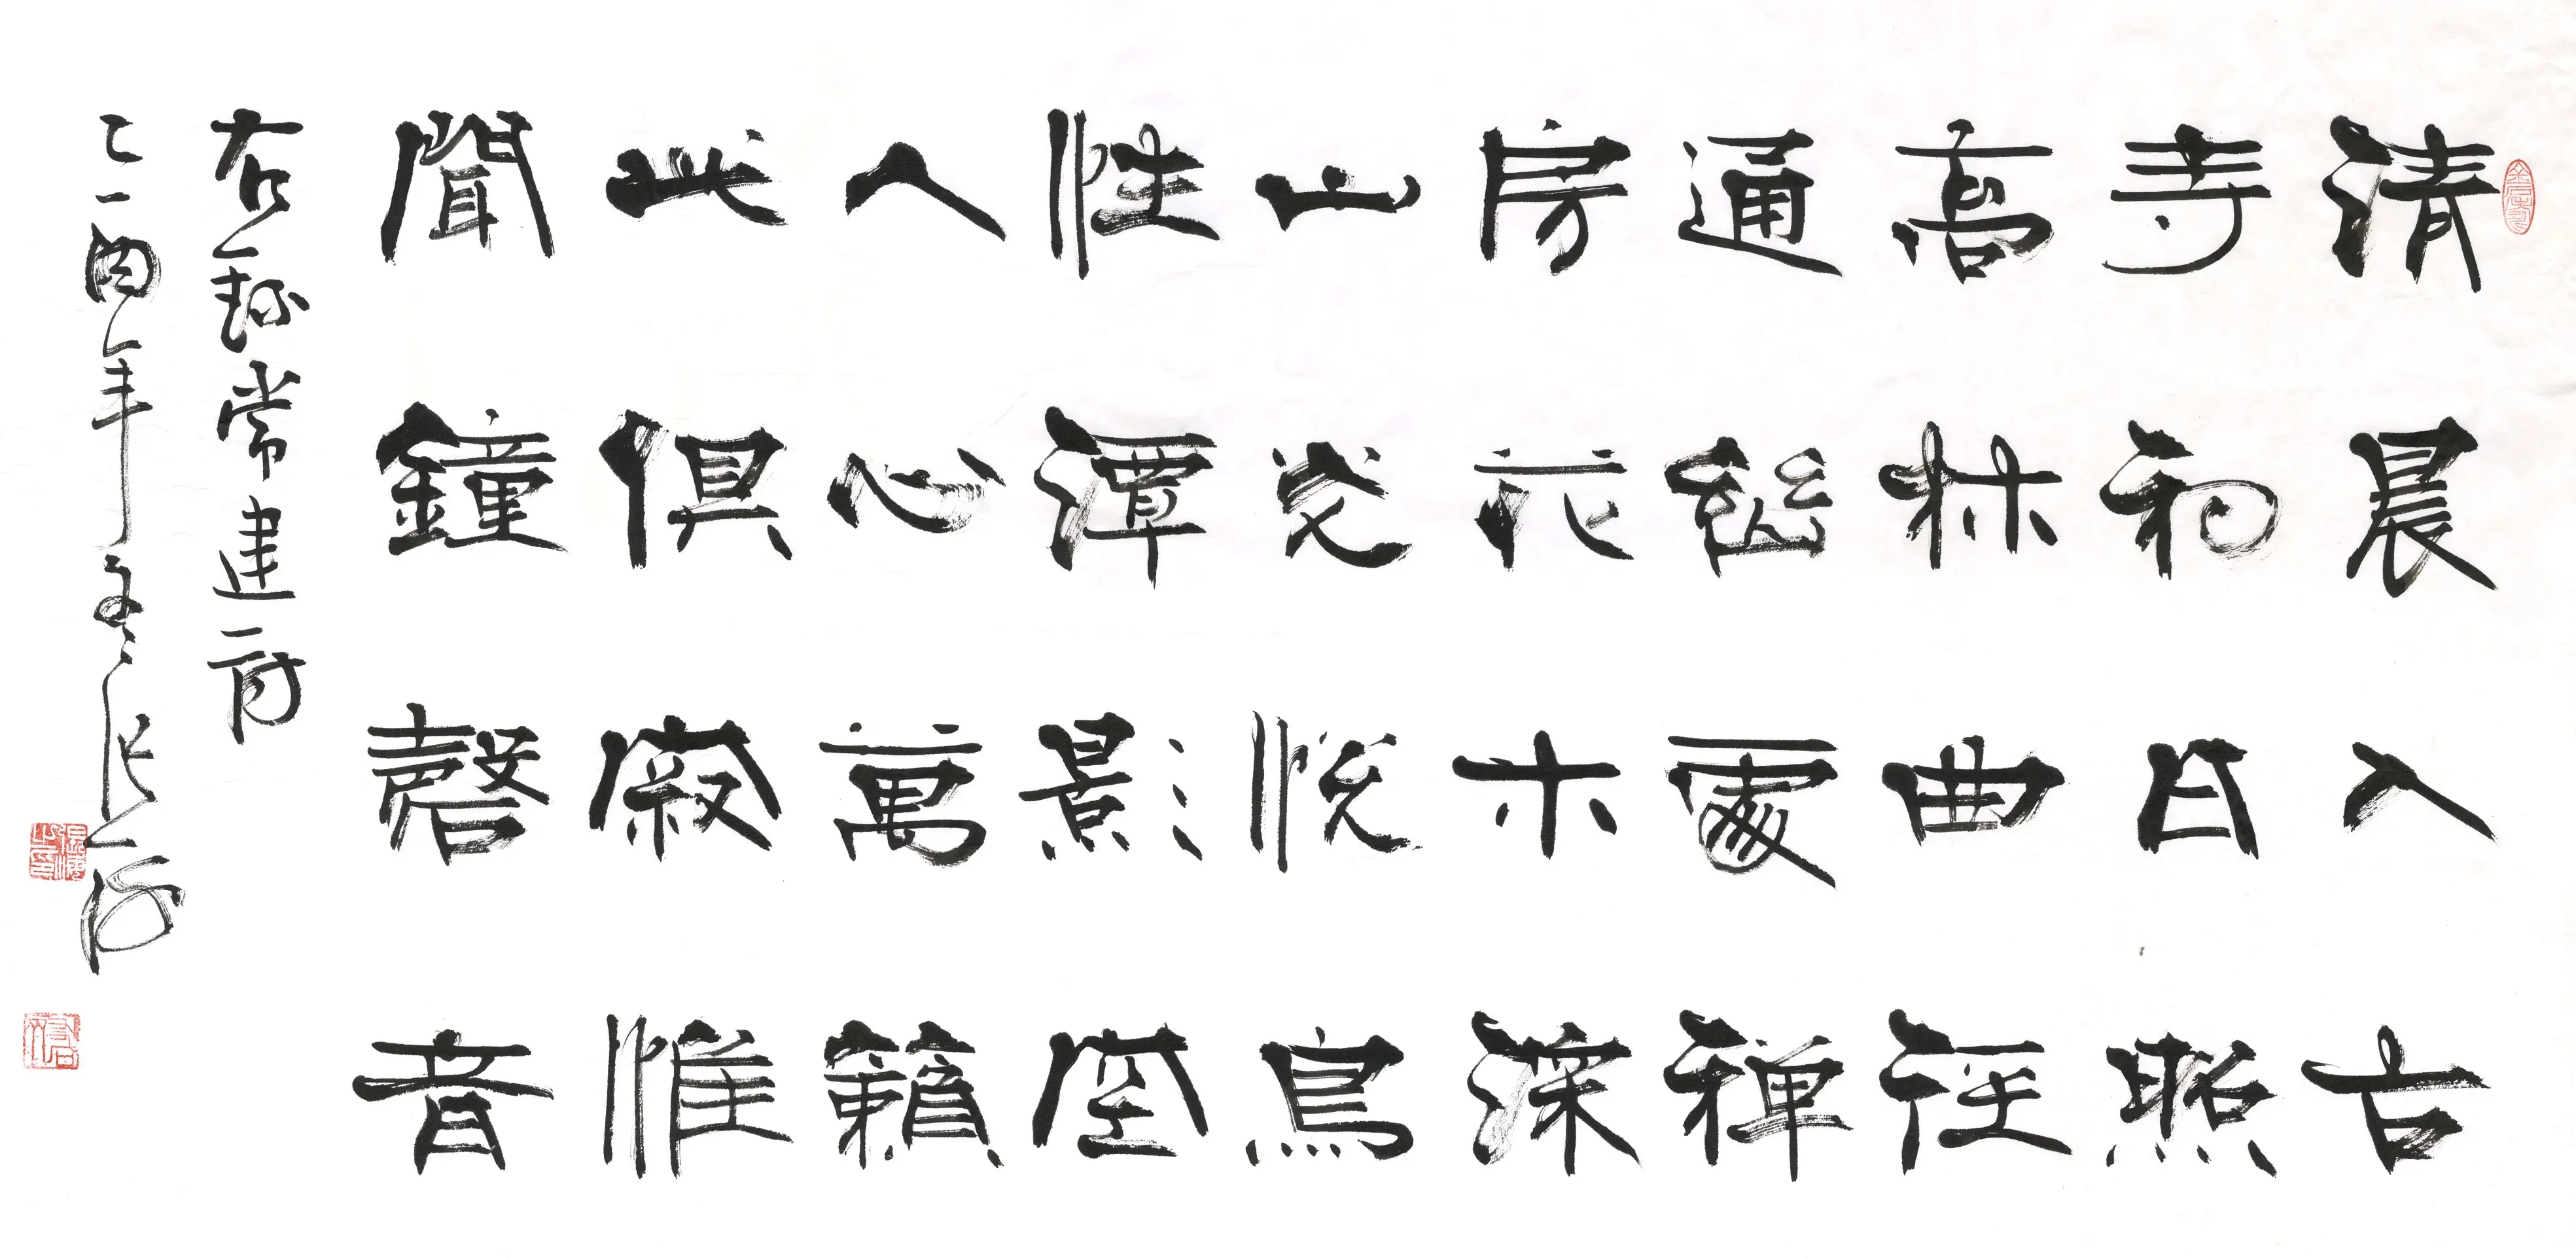 清晨入古
寺初日照
高林曲徑
通幽處禪
房花木深
山光悅鳥
性潭影空
人心萬籟
此俱寂惟
聞鐘磬音
右録常建詩
乙酉年冬張海
張海之印